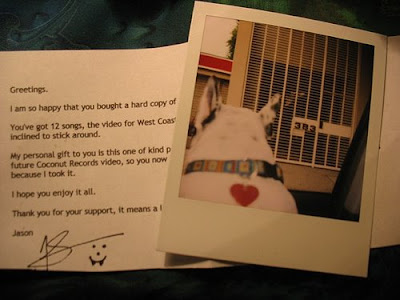 Greetings.
I am so happy that you bought a hard copy of
You've got 12 songs, the video for West Coast
inclined to stick around.
My personal gift to you is this one of kind p
future Coconut Records video, so you now
because I took it.
I hope you enjoy it all.
Thank you for your support, it means a l
Jason
383